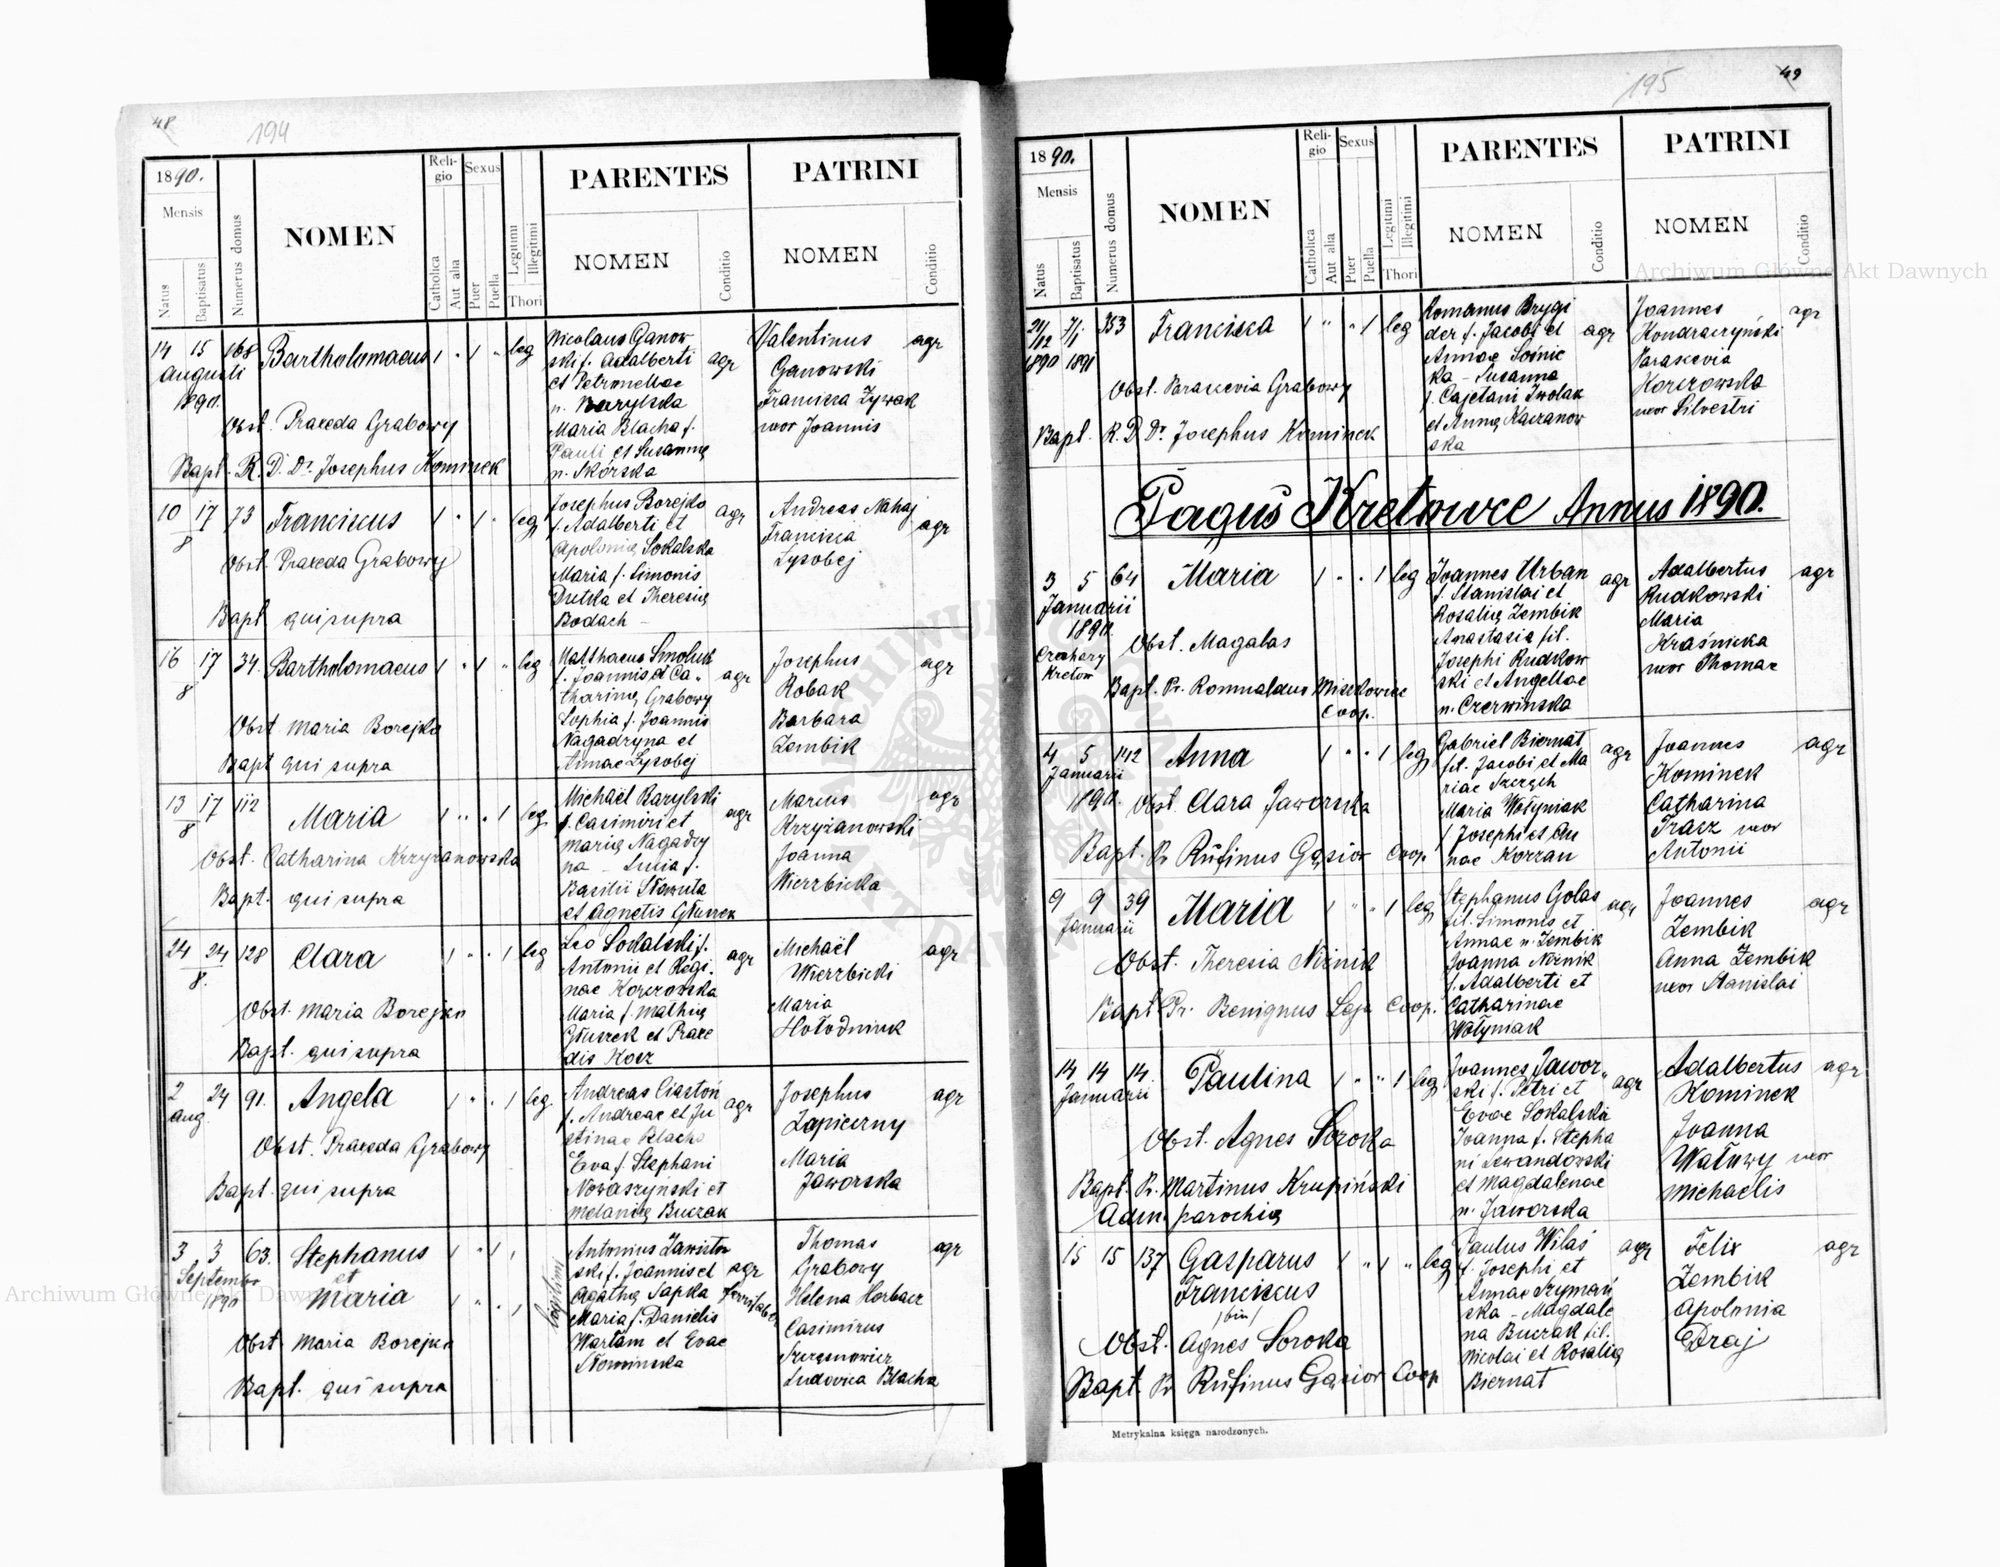 48
194
1890.
Mensis
Natus
Baptisatus
Numerus domus
NOMEN
Reli-
gio
Catholica
Aut alia
Sexus
Puer
Puella
Legitimi
Illegitimi
Thori
PARENTES
NOMEN
Conditio
PATRINI
NOMEN
Conditio
14 15 168 Bartholomaeus 1 " 1 " leg
Augusti
1890.
Obst. Praxeda Grabowy
Bapt. R. D. Dr. Josephus Kominek
Nicolaus Ganow-
ski f. Adalberti
et Petronellae
n. Barylska
Maria Blacha f.
Pauli et Susannę
n. Skórska
agr
Valentinus
Ganowski
Francisca Żywak
uxor Joannis
agr
10 17 73 Franciscus 1 " 1 " leg
8
Obst. Praxeda Grabowy
Bapt qui supra
Josephus Borejko
f. Adalberti et
Apolonię Sokalska
Maria f. Simonis
Dutka et Theresię
Bodach
agr
Andreas Nahaj
Francisca
Łysobej
agr
16 17 34. Bartholomaeus 1 " 1 " leg
8
Obst Maria Borejko
Bapt qui supra
Matthaeus Smoluk
f. Joannis et Ca-
tharinę Grabowy
Sophia f. Joannis
Nagadryna et
Annae Łysobej
agr
Josephus
Robak
Barbara
Zembik
agr
13 17 112 Maria 1 " " 1 leg
8
Obst. Catharina Krzyżanowska
Bapt. qui supra
Michaël Barylski
f. Casimiri et
Marię Nagadry
na - Lucia f.
Basilii Sławuta
et Agnetis Głuszek
agr
Marcus
Krzyżanowski
Joanna
Wierzbicka
agr
24 24 128 Clara 1 " " 1 leg
8.
Obst. Maria Borejko
Bapt. qui supra
Leo Sokalski f.
Antonii et Regi-
nae Korzowska
Maria f. Mathię
Głuszek et Praxe
dis Kosz
agr
Michaël
Wierzbicki
Maria
Hołodniuk
agr
2 24 91. Angela 1 " " 1 leg
aug.
Obst. Praxeda Grabowy
Bapt. qui supra
Andreas Ciastoń
f. Andreae et Ju
stinae Blacha
Eva f. Stephani
Nowaszyński et
Melanię Buczak
agr
Josephus
Zapieczny
Maria
Jaworska
agr
3 3 63. Stephanus 1 " 1 ,
Septembr
1890
et
Maria 1 " " ,
Obst. Maria Borejko
Bapt. qui supra
Antonius Zawisto
ski f. Joannis et
Agathę Sapka
Maria f. Danielis
Wartam et Evae
Słomińska
agr
Thomas
Grabowy
Helena Horbacz
Casimirus
Szczęsnowicz
Ludovica Blacha
agr
49
195
1890.
Mensis
Natus
Baptisatus
Numerus domus
NOMEN
Reli-
gio
Catholica
Aut alia
Sexus
Puer
Puella
Legitimi
Illegitimi
Thori
PARENTES
NOMEN
Conditio
PATRINI
NOMEN
Conditio
7/1 353 Francisca 1 " " 1 leg
12
1890 1891
Obst. Parascevia Grabowy
Bapt. R. D Dr. Josephus Kominek
Romanus Brygi
der f. Jacobi et
Annae Sośnic
ka - Susanna
f. Cajetani Iwolak
et Annę Kaczanow
ska
agr
Joannes
Kondraczyński
Parascevia
Korzowska
uxor Silvestri
agr
Pagus Kretowce Annus 1890.
3 5 64 Maria 1 " " 1 leg
Januarii
1890.
Obst. Magalas
Bapt. Pr. Romualdus Miszkowicz
Coop.
Joannes Urban
f. Stanislai et
Rosalię Zembik
Anastasia fil.
Josephi Rudkow
ski et Angellae
n. Czerwińska
agr
Adalbertus
Rudkowski
Maria
Kraśnicka
uxor Thomae
agr
4 5 142 Anna 1 " " 1 leg
Januarii
1890. Obst. Clara Jaworska
Bapt. Pr Rufinus Gąsior Coop.
Gabriel Biernat
fil. Jacobi et Ma
riae Szczęch
Maria Wołyniak
f Josephi et An
nae Korzan
agr
Joannes
Kominek
Catharina
Tracz uxor
Antonii
agr
9 9 39 Maria 1 " " 1 leg
Januarii
Obst. Theresia Niżnik
Bapt Pr. Benignus Leja Coop.
Stephanus Golas
fil. Simonis et
Annae n. Zembik
Joanna Niżnik
f. Adalberti et
Catharinae
Wołyniak
agr
Joannes
Zembik
Anna Zembik
uxor Stanislai
agr
14 14 14 Paulina 1 " " 1 leg
Januarii
Obst. Agnes Soroka
Bapt. Pr. Martinus Krupiński
Adm. parochię
Joannes Jawor-
ski f. Petri et
Evae Sokalska
Joanna f. Stepha
ni Lewandowski
et Magdalenae
n. Jaworska
agr
Adalbertus
Kominek
Joanna
Watuwy uxor
Michaelis
agr
15 15 137 Gasparus 1 " 1 " leg
Franciscus
/bin/
Obst. Agnes Soroka
Bapt. Pr Rufinus Gąsior Coop
Paulus Wilaś
f. Josephi et
Annae Szymań
ska - Magdale
na Buczak fil.
Nicolai et Rosalię
Biernat
agr
Felix
Zembik
Apolonia
Draj
agr
Metrykalna księga narodzonych.
Archiwum Główne Akt Dawnych
Archiwum Główne Akt Dawnych